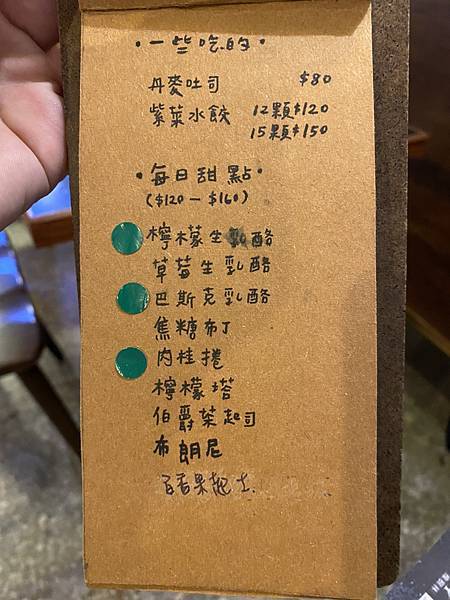 •一些吃的•
丹麥吐司 $80
紫菜水餃 12顆$120
15顆$150
•每日甜點•
($120－$160)
檸檬生乳酪
草莓生乳酪
巴斯克乳酪
焦糖布丁
肉桂捲
檸檬塔
伯爵茶起司
布朗尼
百香果起士